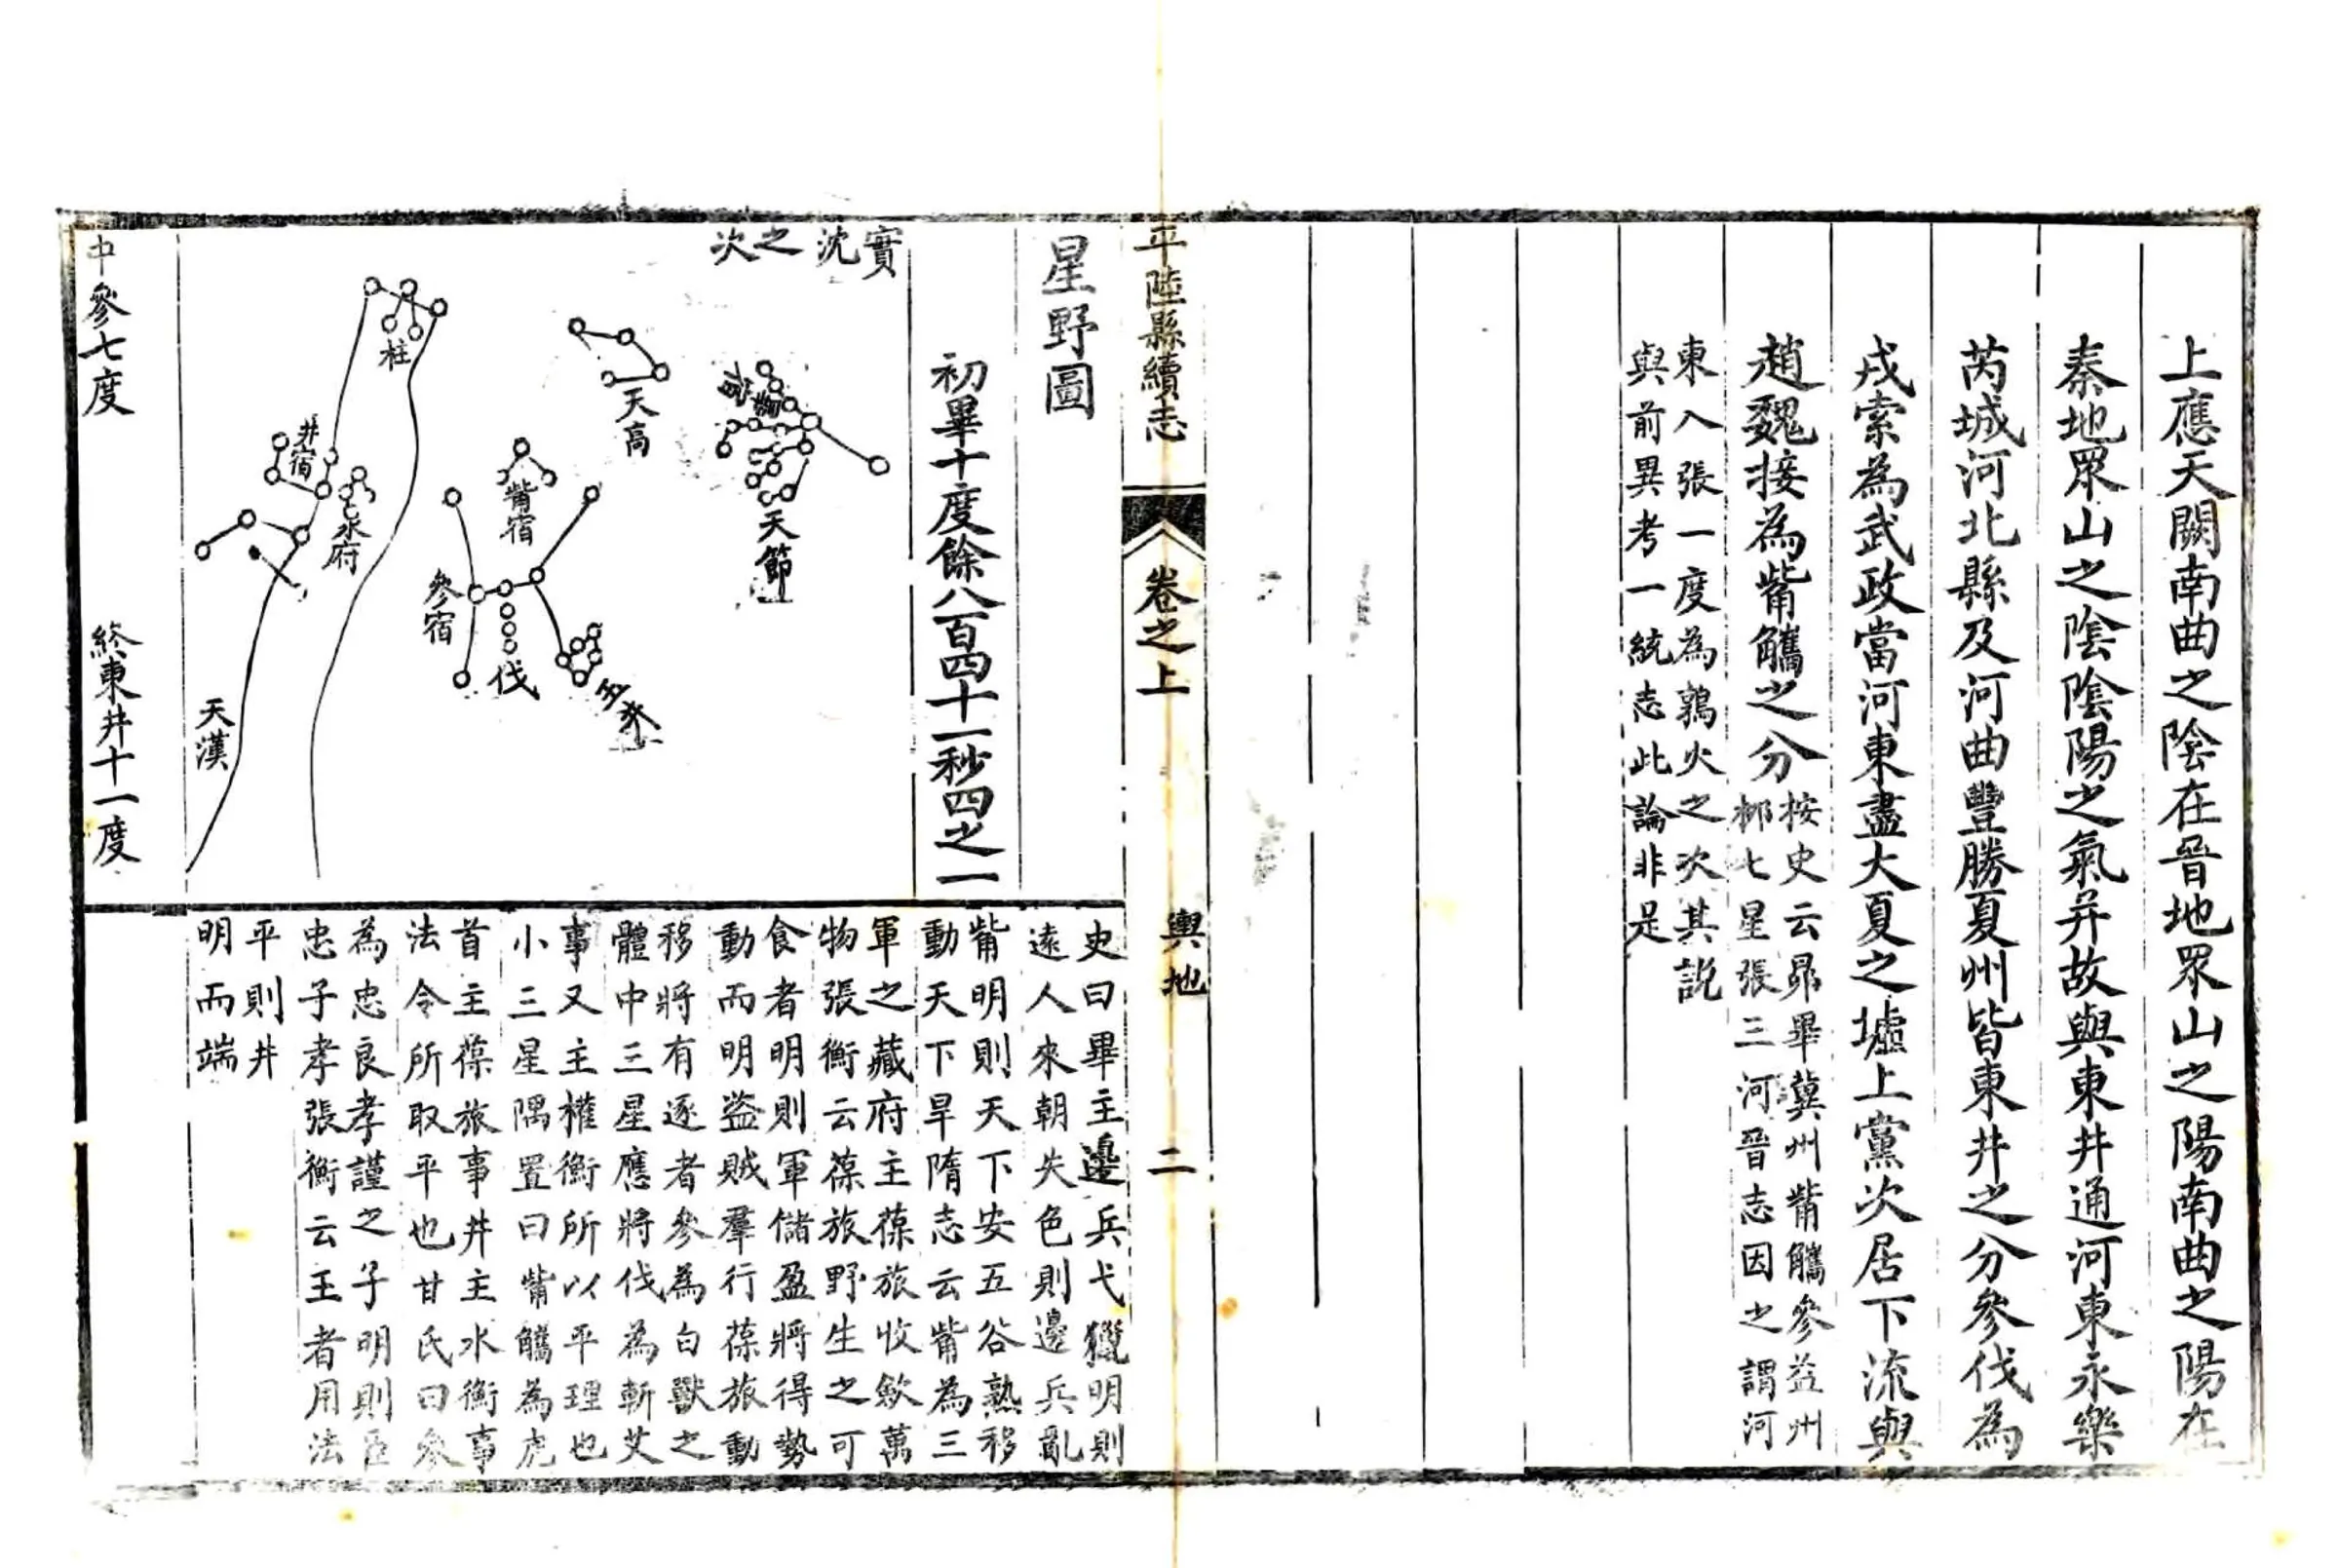 上應天闕南曲之陰在晉地眾山之陽南曲之陽在
秦地眾山之陰陰陽之氣并故與東井通河東永樂
芮城河北縣及河曲豐勝夏州皆東井之分參伐為
戎索為武政當河東盡大夏之墟上黨次居下流與
趙魏接為觜觿之分
按史云昴畢冀州觜觿參益州
柳七星張三河晉志因之謂河
東入張一度為鶉火之次其說
與前異考一統志此論非是
平陸縣續志
卷之上
輿地
二
星野圖
初畢十度餘八百四十一秒四之一
實沈之次
天節
天高
觜宿
參宿
伐
柱
井宿
水府
天漢
中參七度
終東井十一度
史曰畢主邊兵弋獵明則
遠人來朝失色則邊兵亂
觜明則天下安五谷熟移
動天下旱隋志云觜為三
軍之藏府主葆旅收斂萬
物張衡云葆旅野生之可
食者明則軍儲盈將得勢
動而明盜賊羣行葆旅動
移將有逐者參為白獸之
體中三星應將伐為斬艾
事又主權衡所以平理也
小三星隅置曰觜觿為虎
首主葆旅事井主水衡事
法令所取平也甘氏曰參
為忠良孝謹之子明則臣
忠子孝張衡云王者用法
平則井
明而端